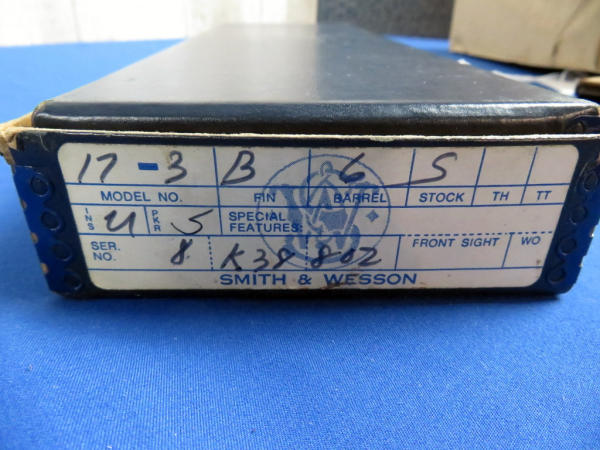 17-3 B 6 S
MODEL NO. FIN BARREL STOCK TH TT
INS U PKR S SPECIAL FEATURES:
SER. NO. 8 K38 802 FRONT SIGHT WO
SMITH & WESSON